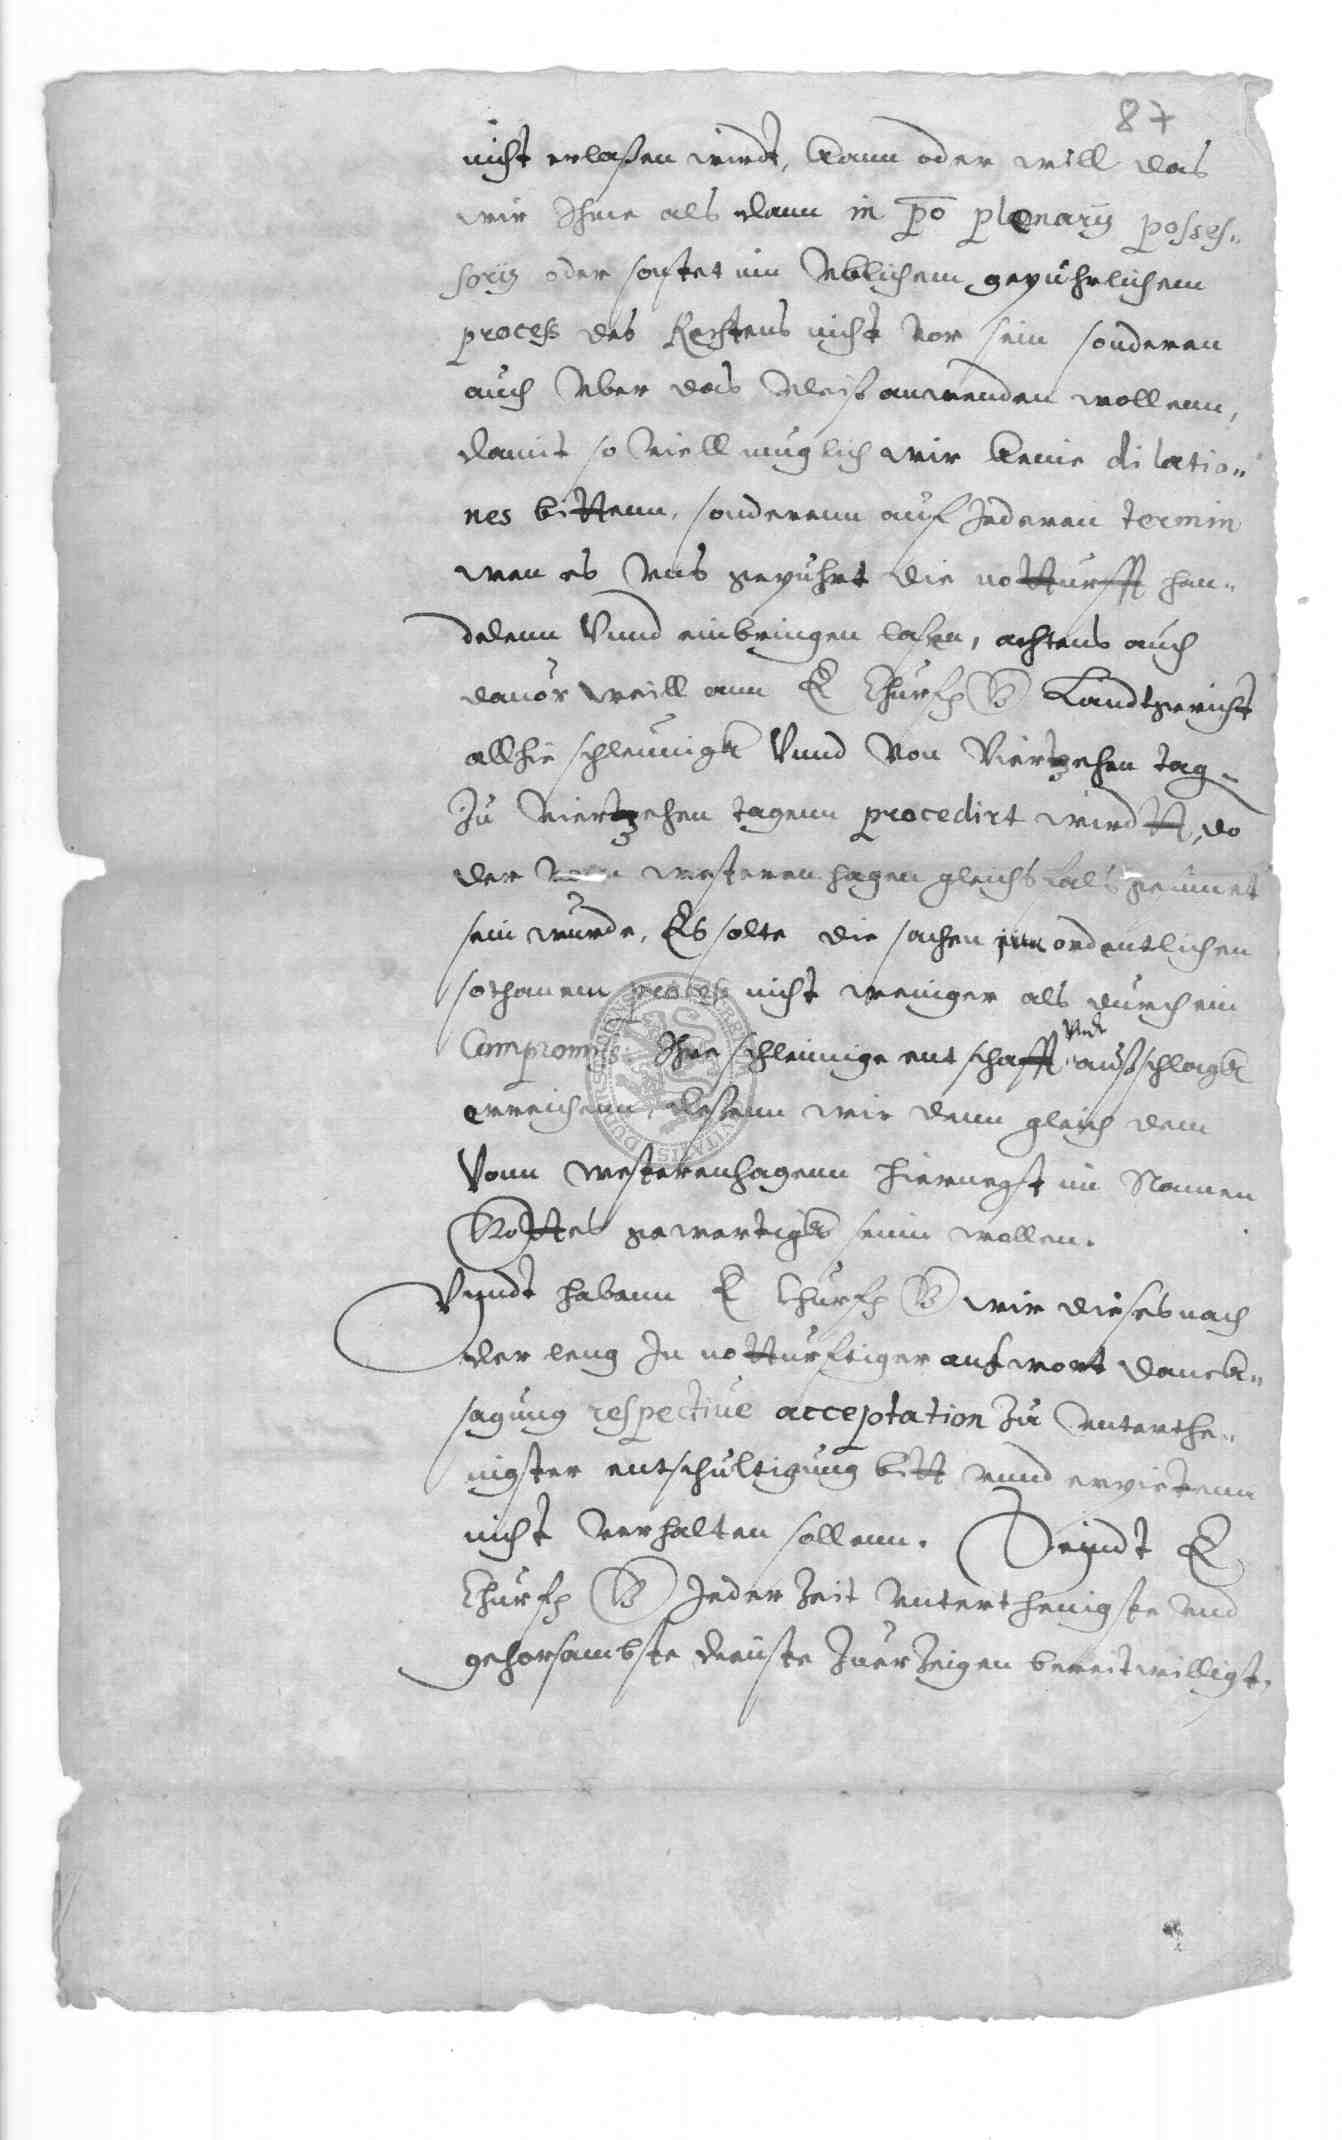 87
nicht erlaßen wirdt, kann oder will das
wir Ihme als dann in po plenarij posses-
sorij oder sonstet im Ublichem gepührlichem
process des Rechtens nicht vor sein sonderen
auch Uber das vleiß anwenden wollenn,
damit so viell muglich wir keine dilatio-
nes bittenn, sonderenn auf Jederen termin
wen es uns gepuhrt die notturfft han-
delenn Unnd einbringen laßen, achtens auch
davor weill ann E Churfl G Landtgericht
allhie schleunigk Unnd Von Viertzehen tag
Zu viertzehen tagenn procedirt wirdtt, do
der westerenhagen gleichsfals gesinnet
sein wurde, Es solte die sachen ordentlichen
sothanem process nicht weniger als durch ein
Compromis Ihre schleunige entschafft und außschlagk
erreichenn, deßenn wir denn gleich dem
Vonn westerenhagenn hiernegst im Namen
Gottes gewertigk seinn wollen.
Unndt habenn E Churfl G wir dieses nach
der leng In notturftiger antwort danck-
sagung respective acceptation Zu unterthe-
nigster entschultigung bitt unnd erpietenn
nicht verhalten sollenn. Seindt E
Churfl G Jeder Zeit unterthenigste und
gehorsambste dienste Zuerzeigen bereitwilligst.